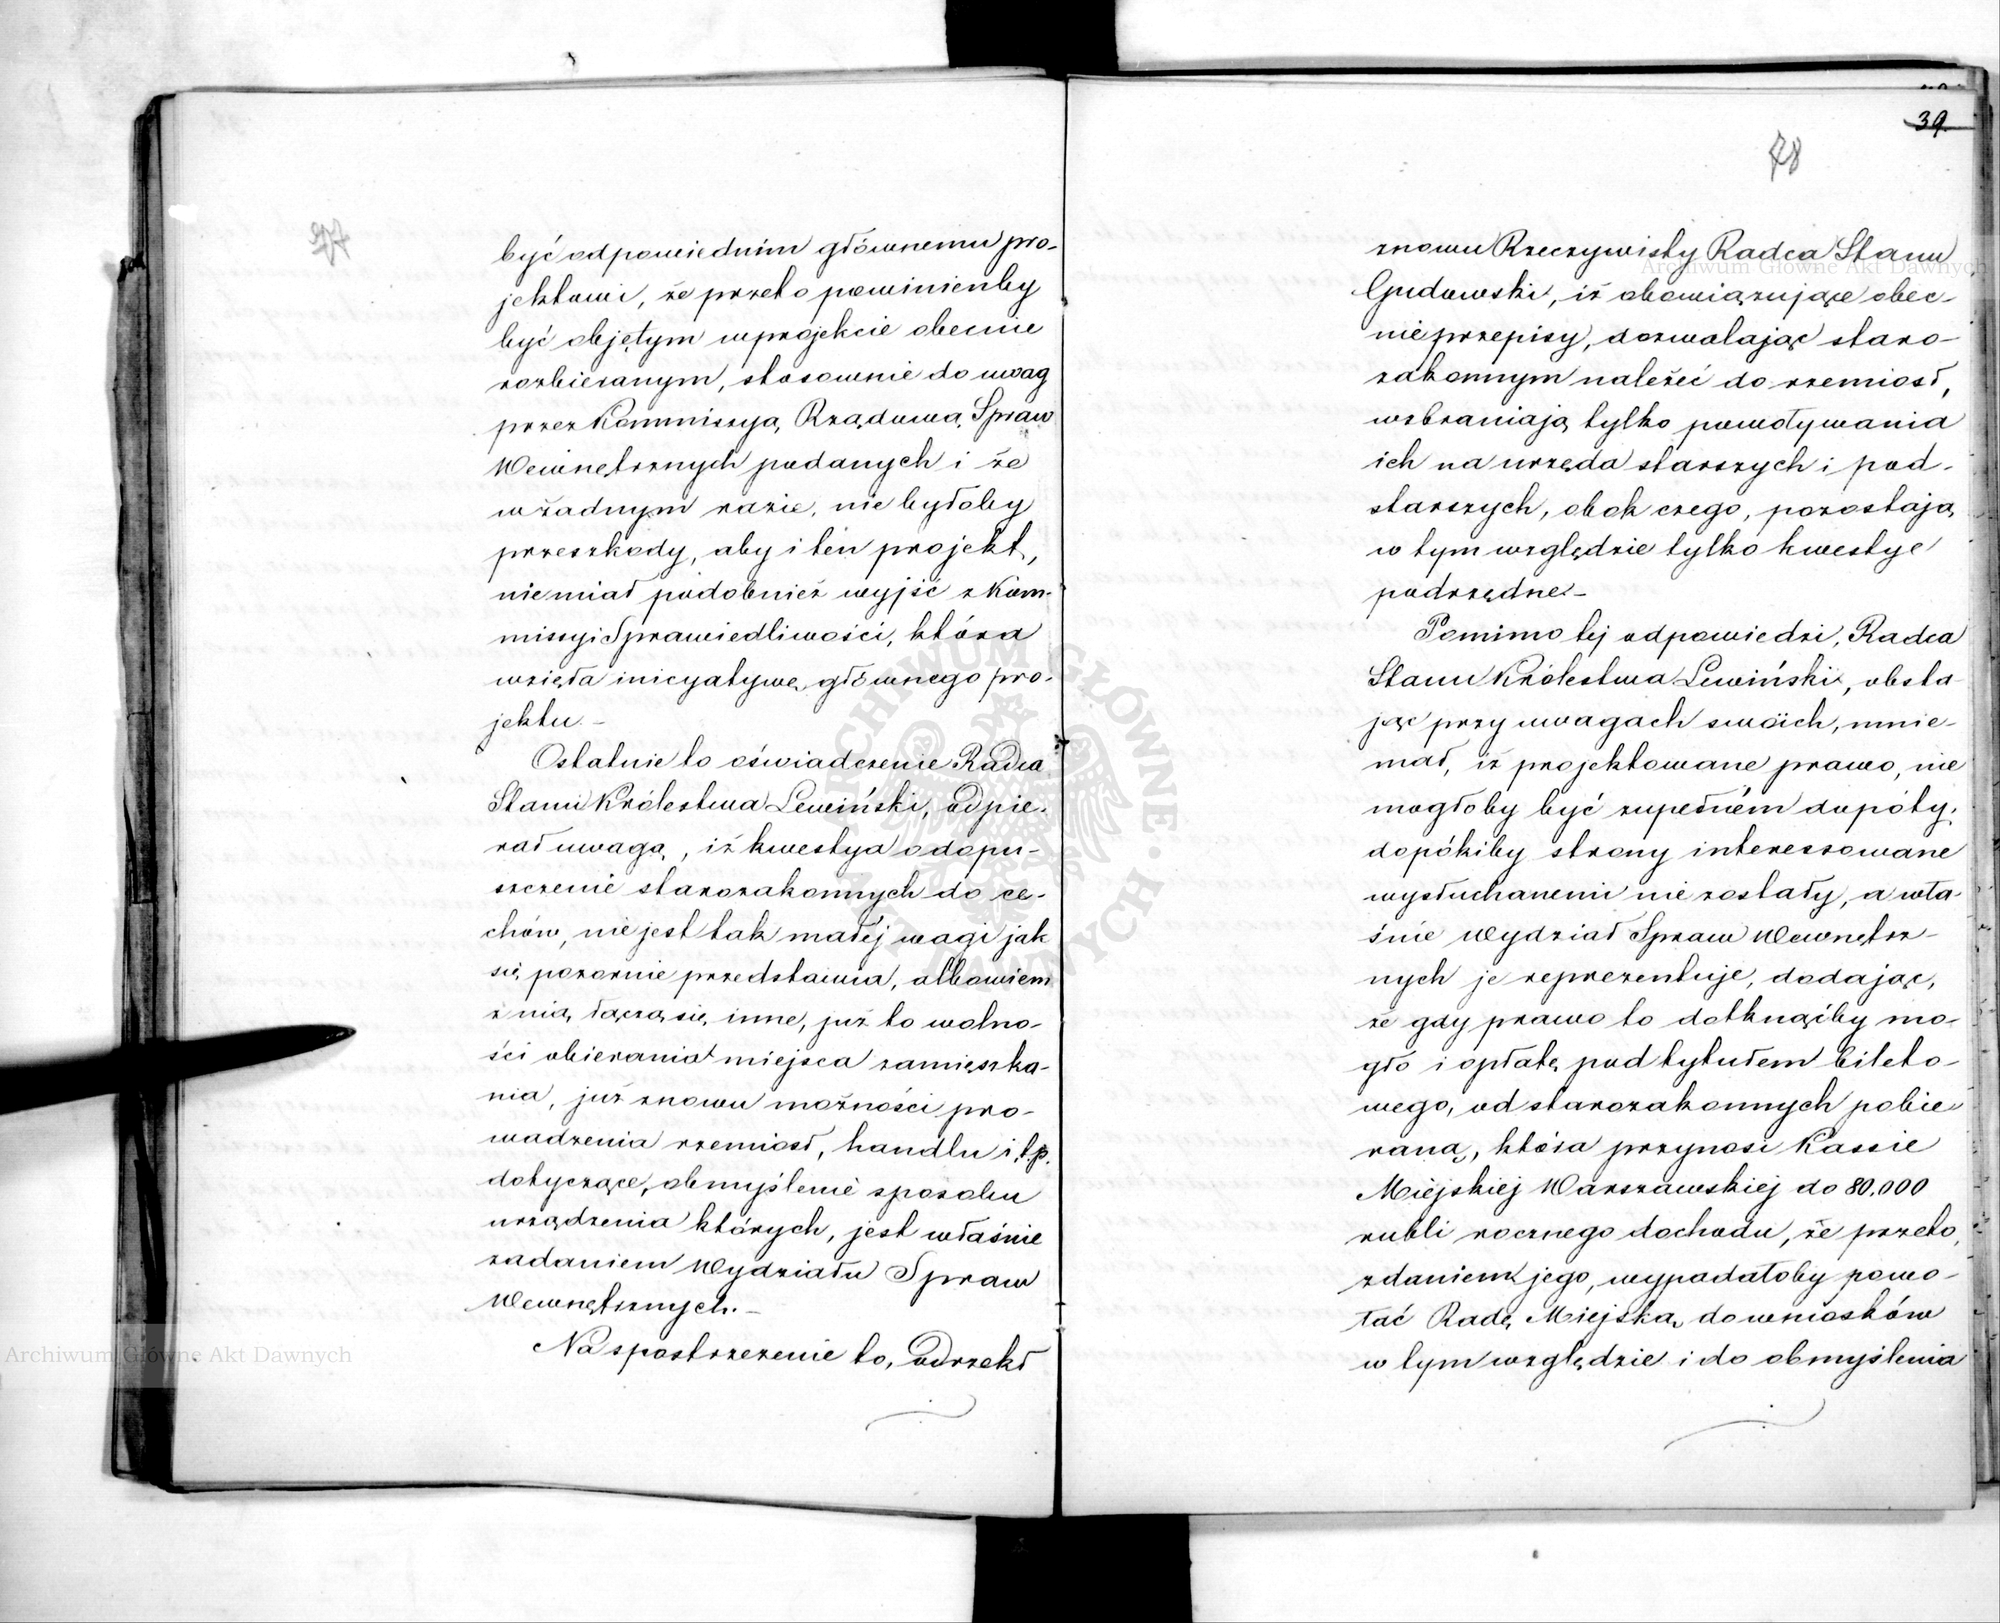 77
być odpowiednim głównemu pro-
jektowi, że przeto powinienby
być objętym w projekcie obecnie
rozbieranym, stosownie do uwag
przez Kommissyą Rządową Spraw
Wewnętrznych podanych i że
w żadnym razie, nie byłoby
przeszkody, aby i ten projekt,
nie miał podobnież wyjść z Kom-
missyi Sprawiedliwości, która
wzięła inicyatywę głównego pro-
jektu. –
Ostatnie to oświadczenie Radca
Stanu Królestwa Lewiński, odpie-
rał uwagą, iż kwestya o dopu-
szczenie starozakonnych do ce-
chów, nie jest tak małej wagi jak
się pozornie przedstawia, albowiem
z nią łączą się inne, już to wolno-
ści obierania miejsca zamieszka-
nia, już znowu możności pro-
wadzenia rzemiosł, handlu i t.p.
dotyczące, obmyślenie sposobu
urządzenia których, jest właśnie
zadaniem Wydziału Spraw
Wewnętrznych. –
Na spostrzeżenie to, odrzekł
39
78
znowu Rzeczywisty Radca Stanu
Gudowski, iż obowiązujące obec-
nie przepisy, dozwalając staro-
zakonnym należeć do rzemiosł,
wzbraniają tylko powoływania
ich na urzęda starszych i pod-
starszych, obok czego, pozostają
w tym względzie tylko kwestye
podrzędne. –
Pomimo tej odpowiedzi, Radca
Stanu Królestwa Lewiński, obsta-
jąc przy uwagach swoich, mnie-
mał, iż projektowane prawo, nie
mogłoby być zupełném dopóty,
dopókiby strony interessowane
wysłuchanemi nie zostały, a wła-
śnie Wydział Spraw Wewnętrz-
nych je reprezentuje, dodając,
że gdy prawo to dotknąćby mo-
gło i opłatę pod tytułem bileto-
wego, od starozakonnych pobie-
raną, która przynosi Kassie
Miejskiej Warszawskiej do 80.000
rubli rocznego dochodu, że przeto,
zdaniem jego, wypadałoby powo-
łać Radę Miejską do wniosków
w tym względzie i do obmyślenia
Archiwum Główne Akt Dawnych
Archiwum Główne Akt Dawnych
ARCHIWUM GŁÓWNE AKT DAWNYCH